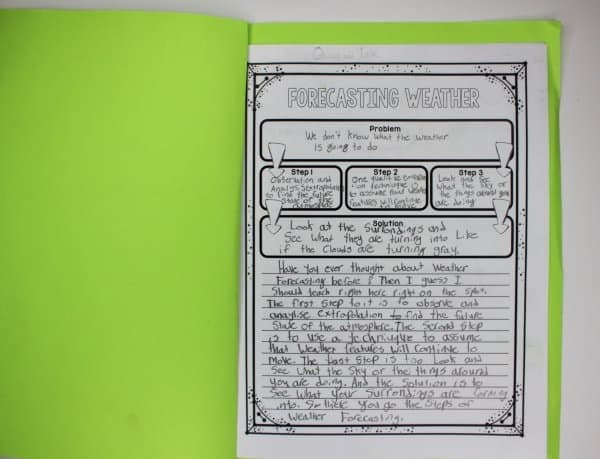 FORECASTING WEATHER
Problem
We don't know what the weather
is going to do
Step 1
Obsertation and
to find the future
State of the
Step 2
One
to assume that
features will continue
Step 3
Look and see
what the sky or
the things around you
are doing
Solution
Look at the Surrondings and
See what they are turning into Like
if the Clouds are turning gray.
Have you ever thought about Weather
Forecasting before? Then I guess I
Should teach right here right on the spot.
The first Step to it is to observe and
anaylise extropolation to find the future
State of the atmosphere. The Second Step
is to use a technique to assume
that Weather features will continue to
move. The Last Step is too Look and
See What the Sky or the things around
you are doing. And the Solution is to
See What your Surrondings are turning
into. So there you go the Steps of
Weather Forecasting.